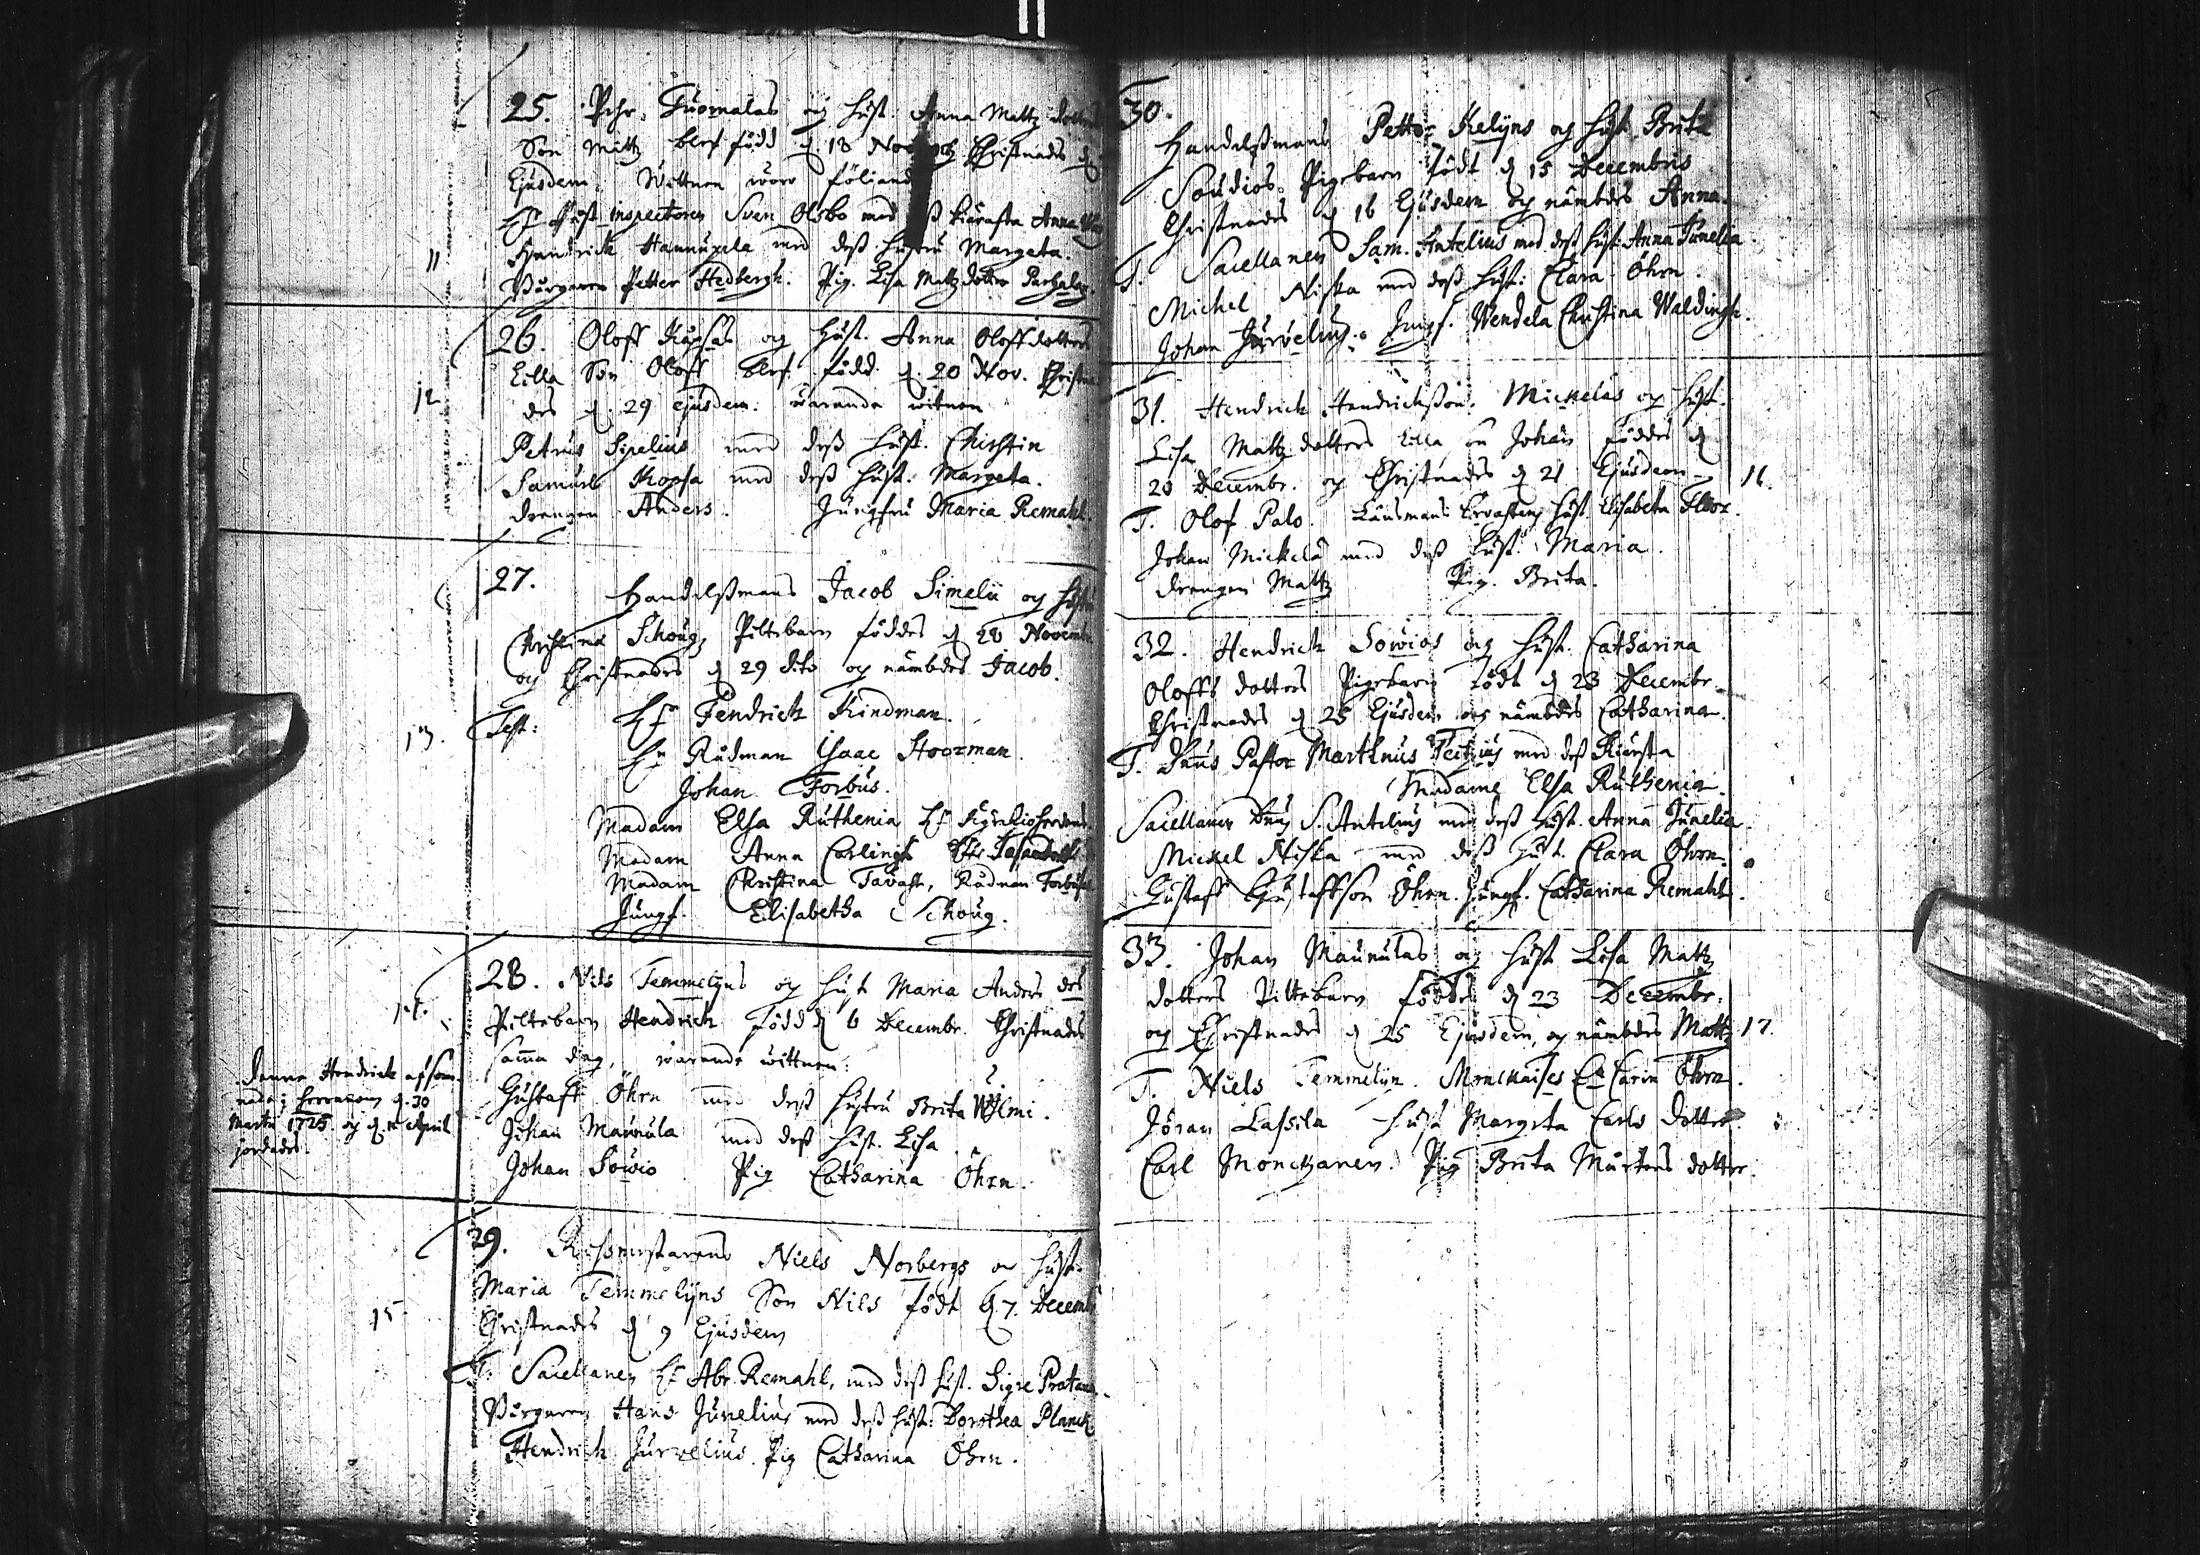 25. Pehr Tuomalas og hust. Anna Mattz dotters
Son Mattz blef född d. 18 Novemb Christnades d
Ejusdem. Wittnen woro följande
Hr Post inspectoren Sven Olsbo med deß kiärasta Anna
11 Hendrich Hannuxela med deß hustru Margeta.
Borgaren Petter Hedbergh. Pig. Lisa Mattzdotter
26. Oloff Kåpsas og Hust. Anna Oloffdotters
Lilla Son Oloff blef född d. 20 Nov. Christna
12 des d. 29 ejusdem: warande witnen
Petrus Sipelius med deß hust. Chirstin
Samuel Kopsa med deß hust: Margeta.
drengen Anders. Jungfru Maria Remahl.
27. Handelßmans Jacob Simelii og hustru
Christina Schougs Piltebarn föddes d 28 Novemb
og Christnades d 29 dito og nämbdes Jacob.
13. Test: Hr Fendrich Kindman.
Hr Rådman Isaac Stoorman.
Johan Forbus.
Madam Elsa Ruthenia Hr
Madam Anna Carlingh
Madam Christina Tavast, Rådman Forbus
Jungf. Elisabetha Schoug.
28. Nils Temmelyns og hust Maria Anders des
14. Piltebarn Hendrich född d 6 Decembr. Christnades
samma dag, warande wittnen:
Gustaff Öhrn med deß hustru Brita Wilmi.
Johan Maunula med deß hust. Lisa
Johan Sowio Pig Catharina Öhrn.
Denne Hendrich afsom-
nade; d. 30
Martii 1725 og d. 11 April
jordades.
29. Niels Norbergs og hust.
Maria Temmelyns Son Nils födt d. 7. Decemb
15 Christnades d 9 Ejusdem
T. Sacellanen Hr Abr. Remahl, med deß hust. Sigre Pratana.
Borgaren Hans Junelius med deß hust: Dorothea Planck
Hendrich Jurvelius. Pig Catharina Öhrn.
30.
Handelßmans Petter Kelyns og hust Brita
Soudios Pigebarn födt d 15 Decembris
Christnades d 16 Ejusdem og nämbdes Anna.
T. Sacellanen Sam. Antelius med deß hust: Anna Junelia
Michel Niska med deß hust: Clara Öhrn.
Johan Jurvelius. Jungf. Wendela Christina Waldingh.
31. Hendrich Hendrichßon Mickelas og hust.
Lisa Mattz dotters lilla son Johan föddes d
20 Decembr. og Christnades d 21 Ejusdem 16.
T. Olof Palo. Länsmans hust. Elisabeta Floor.
Johan Mickelä med deß hust. Maria.
drengen Mattz Pig. Brita.
32. Hendrich Sowios og hust. Catharina
Oloffs dotters Pigebarn födt d 23 Decembr.
Christnades d 25 Ejusdem og nämbdes Catharina.
T. Dnus Pastor Martinus Teitzius med deß Kiärsta
Madame Elsa Ruthenia.
Sacellanen Dnus S. Antelius med deß Hust. Anna Junelia.
Mickel Niska med deß hust. Clara Öhrn.
Gustaff Gustaffson Öhrn. Jungf. Catharina Remahl.
33. Johan Maunulas og hust Lisa Mattz
dotters Piltebarn föddes d 23 Decembr.
og Christnades d 25 Ejusdem, og nämbdes Mattz 17.
T. Niels Temmelyn. Carin Öhrn.
Jöran Lassila hust Margeta Carls dotter.
Carl Monckanen. Pig Brita Mårtens dotter.